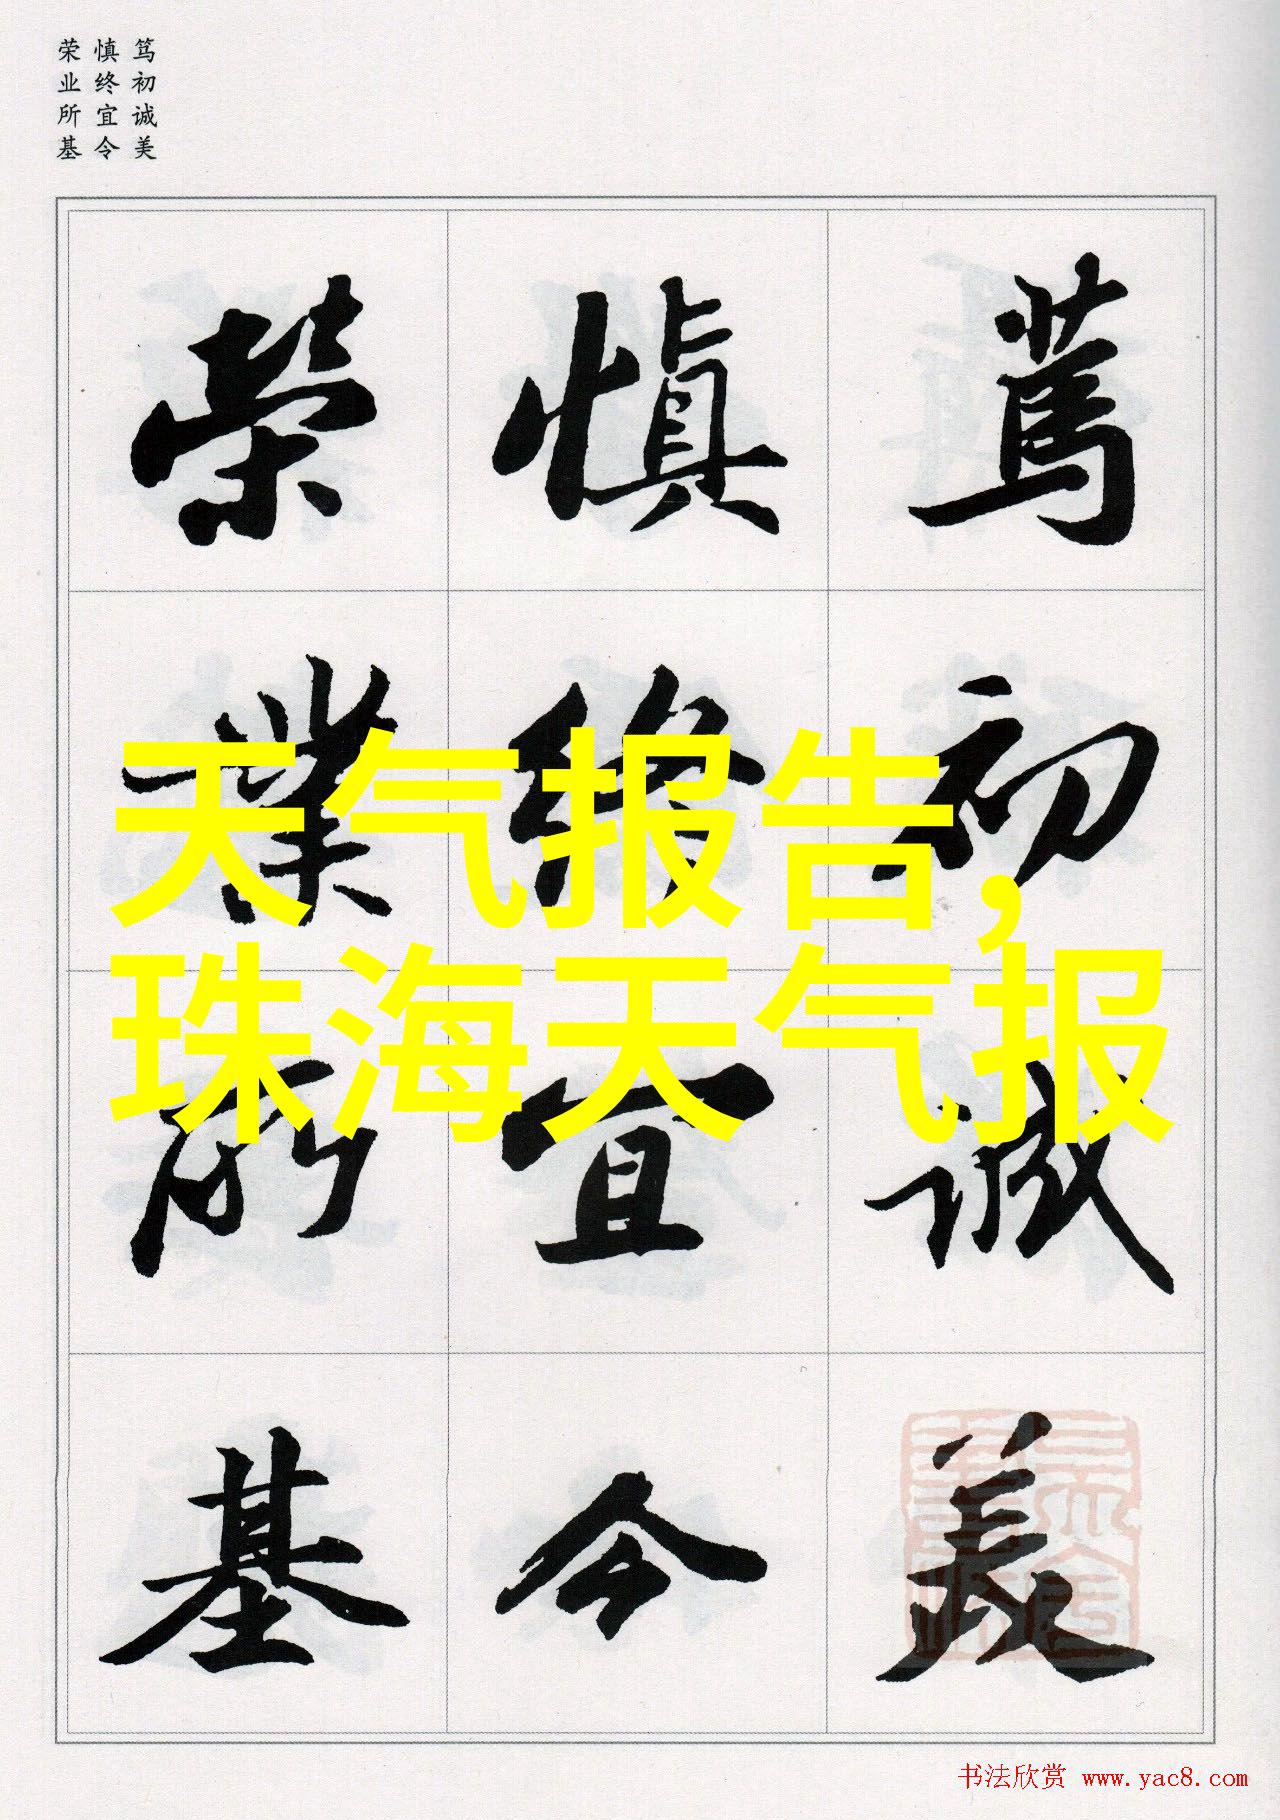 笃初诚美
慎终宜令
荣业所基
篤初誠美
慎終宜令
榮業所基
天气报告,
珠海天气报
书法欣赏 www.yac8.com